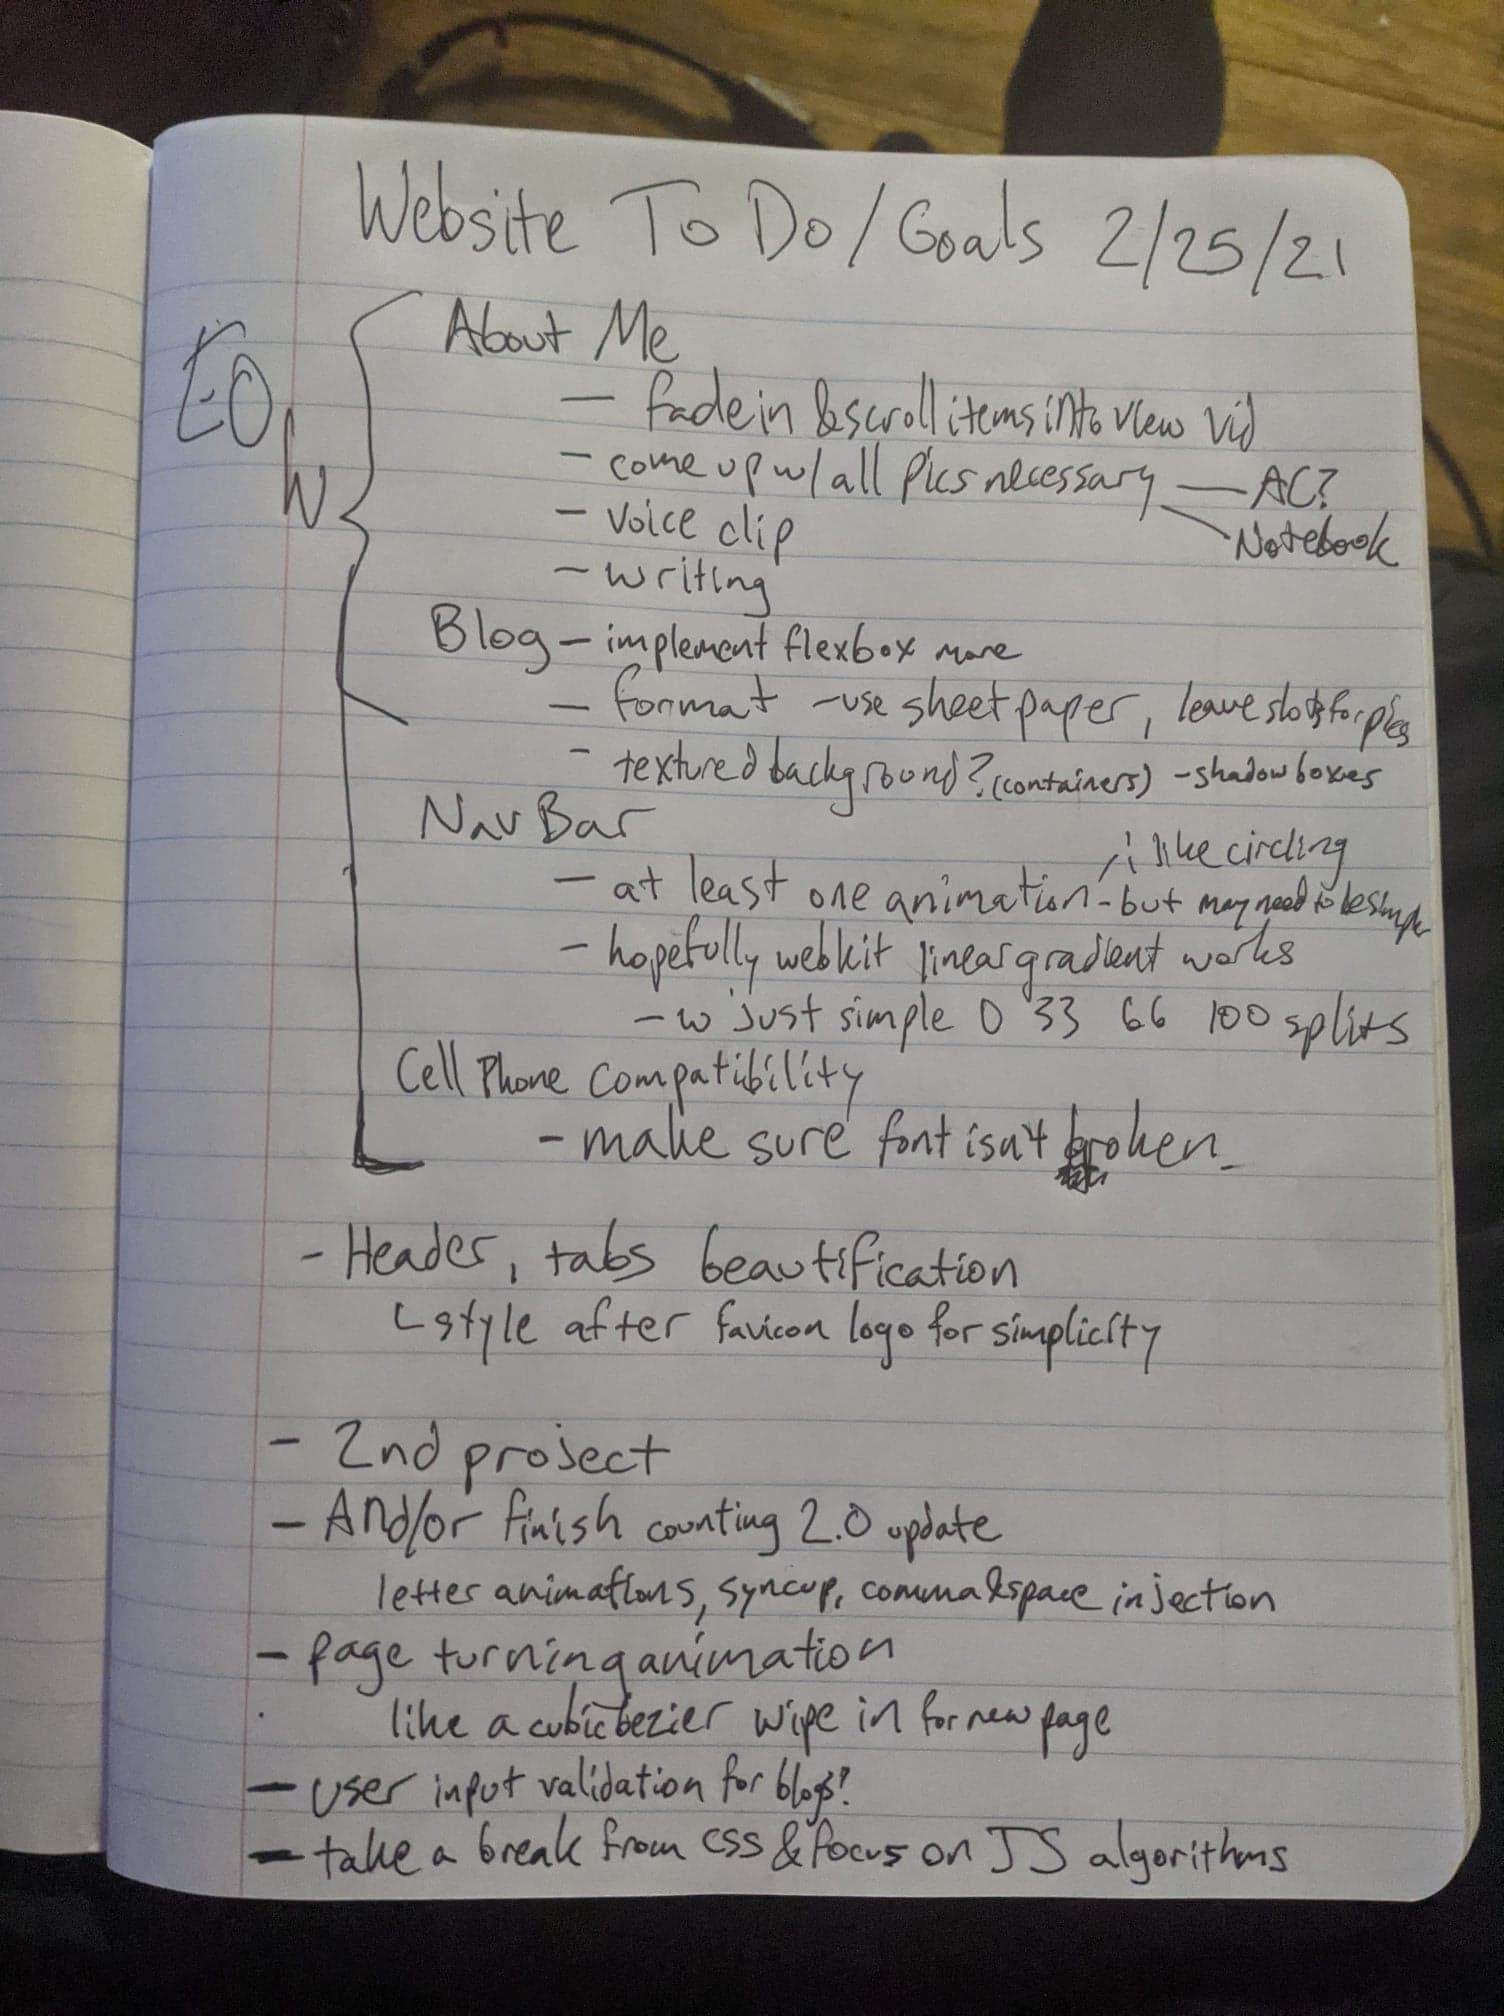 Website To Do/Goals 2/25/21
EOW
About Me
– fade in & scroll items into view vid
– come up w/ all pics necessary — AC?
Notebook
– voice clip
– writing
Blog – implement flexbox more
– format – use sheet paper, leave slots for pics
– textured background? (containers) – shadow boxes
Nav Bar
like circling
– at least one animation – but may need to be simple
– hopefully webkit linear gradient works
– w just simple 0 33 66 100 splits
Cell Phone compatibility
– make sure font isn't broken
– Header, tabs beautification
style after favicon logo for simplicity
– 2nd project
– And/or finish counting 2.0 update
letter animations, syncup, comma & space injection
– page turning animation
like a cubic bezier wipe in for new page
– user input validation for blogs?
– take a break from css & focus on JS algorithms